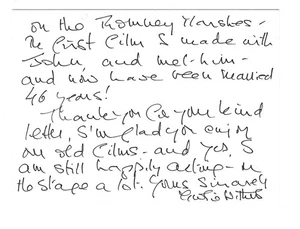 on the Romney Marshes -
the first film I made with
John, and met - him -
and now have been married
46 years!
Thank you for your kind
letter, I'm glad you enjoy
our old films - and yes, I
am still happily acting - on
the stage a lot. Yours Sincerely
Googie Withers